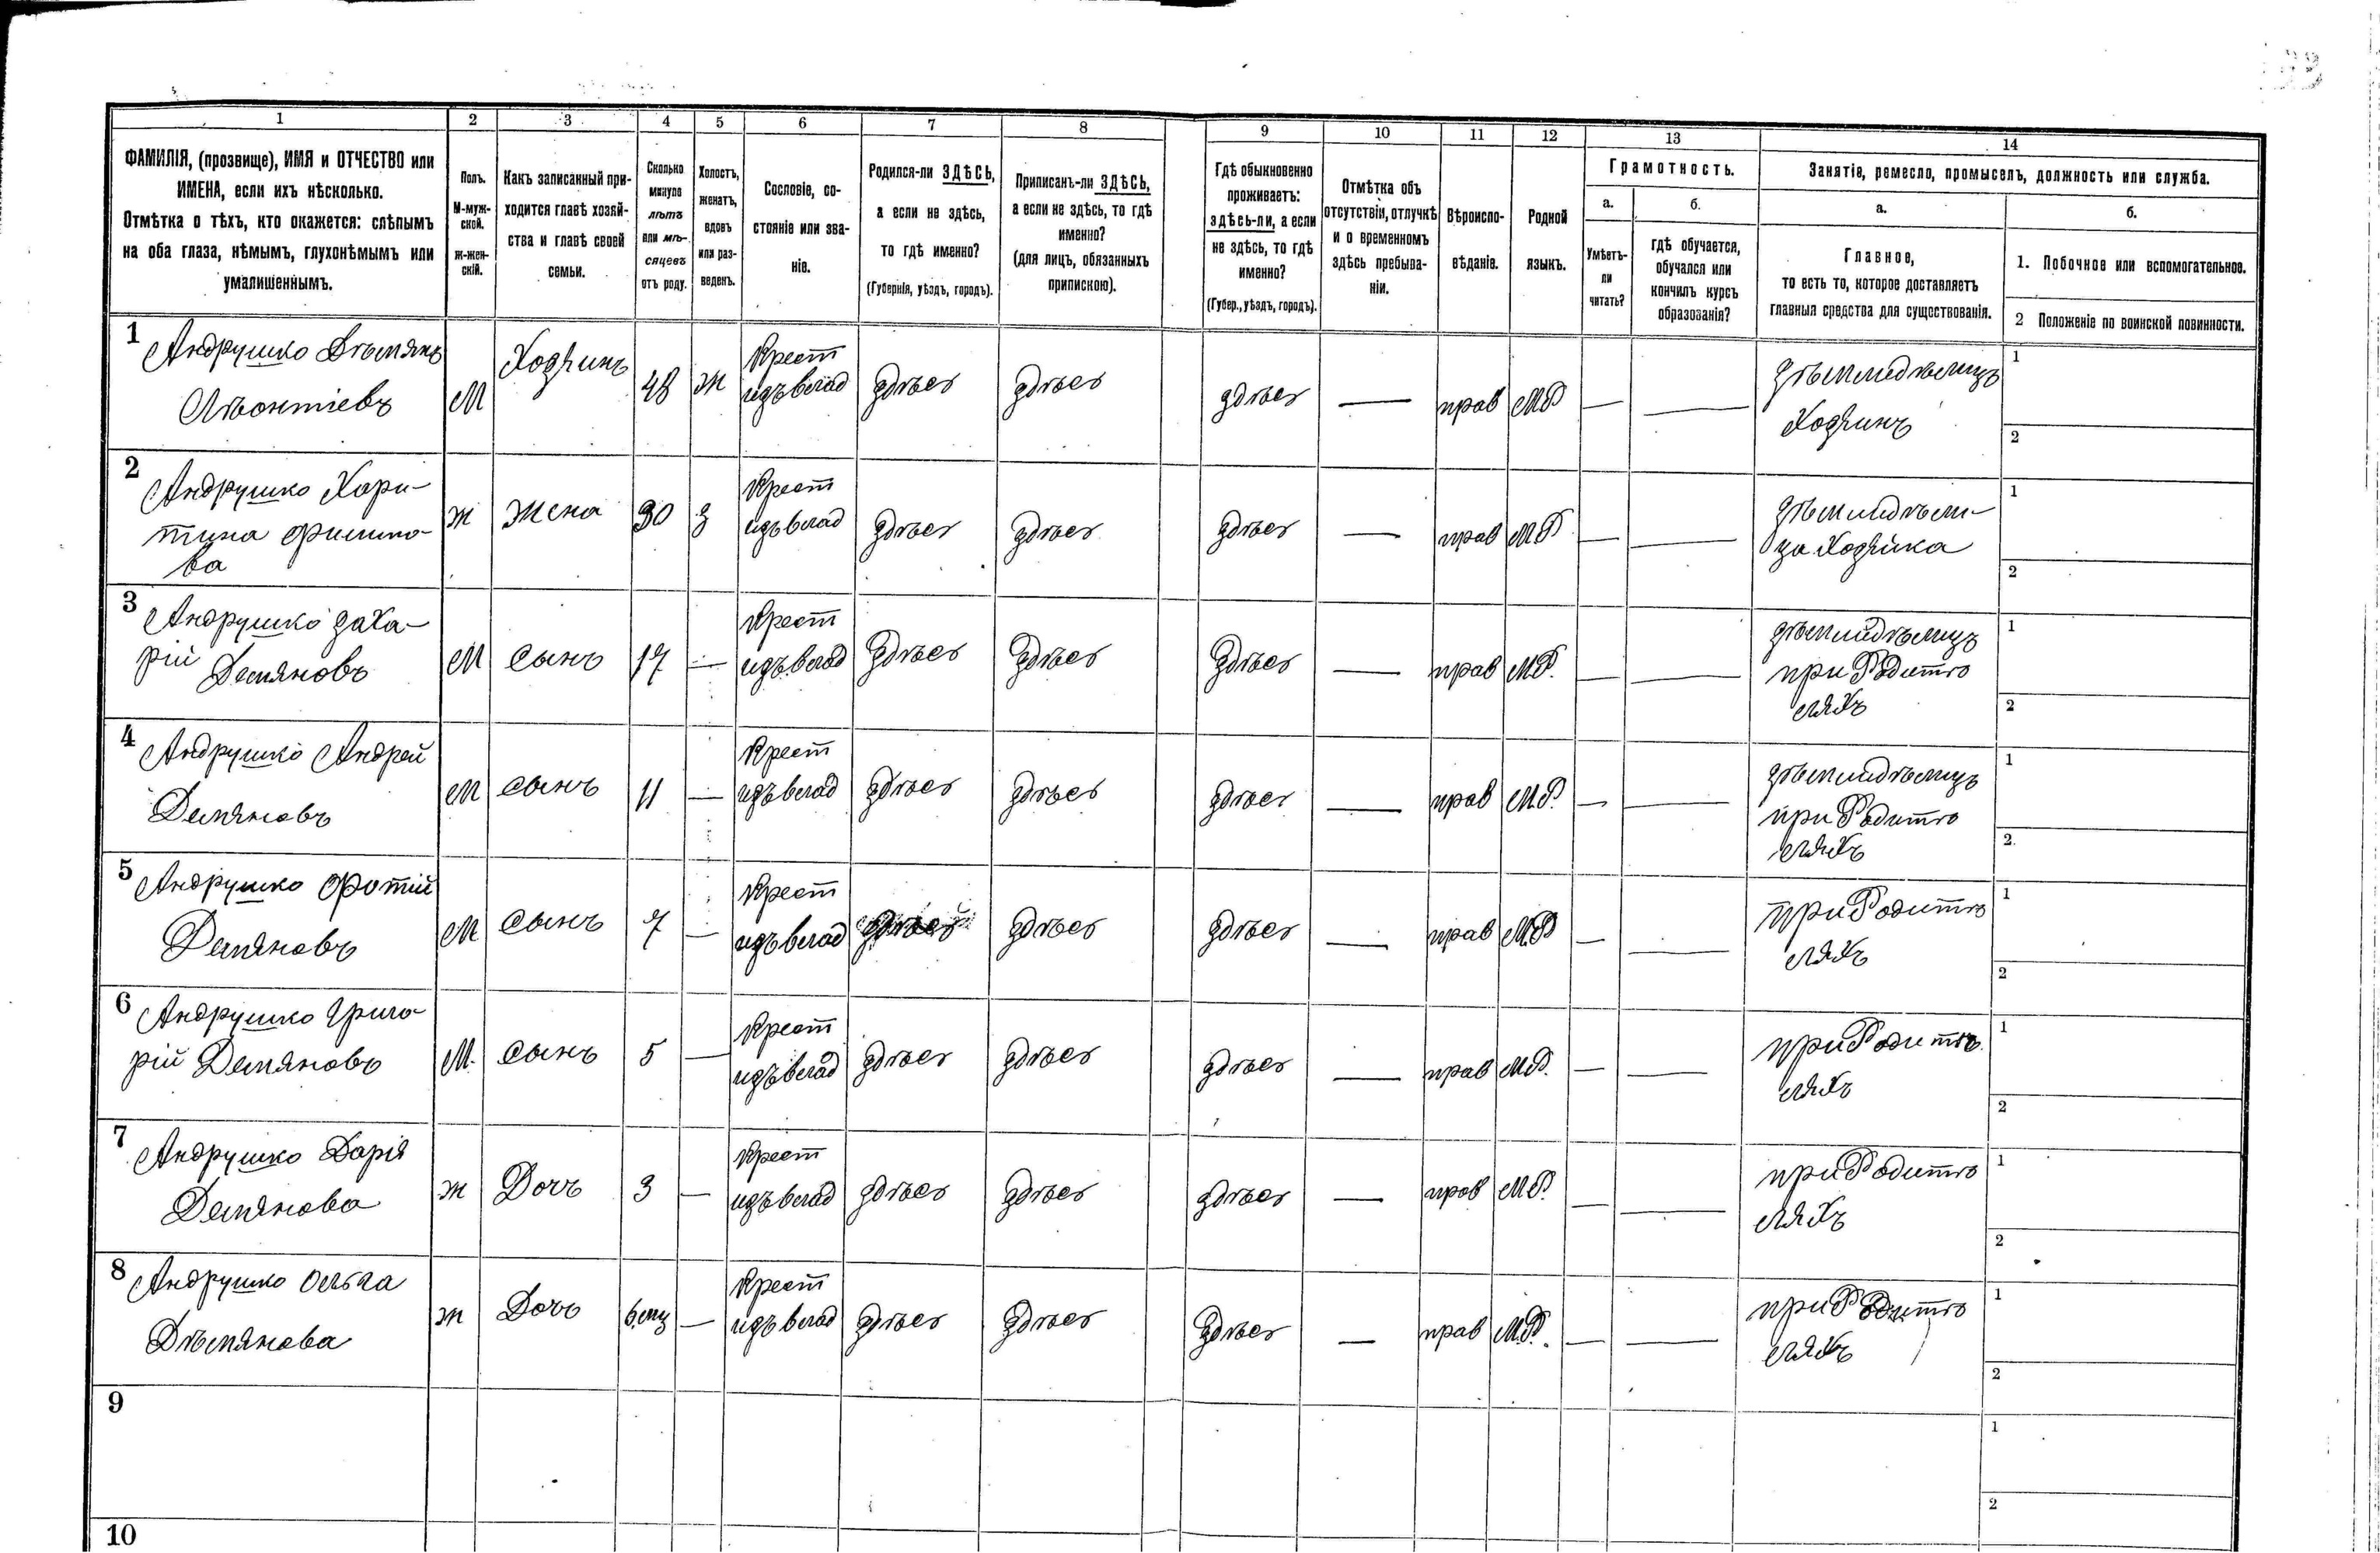 1 2 3 4 5 6 7 8 9 10 11 12 13 14
ФАМИЛІЯ, (прозвище), ИМЯ и ОТЧЕСТВО или
ИМЕНА, если ихъ нѣсколько.
Отмѣтка о тѣхъ, кто окажется: слѣпымъ
на оба глаза, нѣмымъ, глухонѣмымъ или
умалишеннымъ.
Полъ.
М-муж-
ской.
ж-жен-
скій.
Какъ записанный при-
ходится главѣ хозяй-
ства и главѣ своей
семьи.
Сколько
минуло
лѣтъ
или мѣ-
сяцевъ
отъ роду.
Холостъ,
женатъ,
вдовъ
или раз-
веденъ.
Сословіе, со-
стояніе или зва-
ніе.
Родился-ли ЗДѢСЬ,
а если не здѣсь,
то гдѣ именно?
(Губернія, уѣздъ, городъ).
Приписанъ-ли ЗДѢСЬ,
а если не здѣсь, то гдѣ
именно?
(для лицъ, обязанныхъ
припискою).
Гдѣ обыкновенно
проживаетъ:
здѣсь-ли, а если
не здѣсь, то гдѣ
именно?
(Губер., уѣздъ, городъ).
Отмѣтка объ
отсутствіи, отлучкѣ
и о временномъ
здѣсь пребыва-
ніи.
Вѣроиспо-
вѣданіе.
Родной
языкъ.
Грамотность.
а.
Умѣетъ-
ли
читать?
б.
гдѣ обучается,
обучался или
кончилъ курсъ
образованія?
Занятіе, ремесло, промыселъ, должность или служба.
а.
Главное,
то есть то, которое доставляетъ
главныя средства для существованія.
б.
1. Побочное или вспомогательное.
2 Положеніе по воинской повинности.
1
Андрушко Дѣмянъ
Лѣонтіевъ
М
Хозяинъ
48
Ж
Крест
изъ влад
здѣсь
здѣсь
здѣсь
—
прав
МР
—
—
зѣмлидѣлицъ
Хозяинъ
1
2
2
Андрушко Хари-
тина Филипо-
ва
ж
Жена
30
з
Крест
изъ влад
здѣсь
здѣсь
здѣсь
—
прав
МР
—
—
зѣмлидѣли-
ца Хозяйка
1
2
3
Андрушко Заха-
рій Демяновъ
М
Сынъ
17
—
Крест
изъ влад
здѣсь
здѣсь
здѣсь
—
прав
МР.
—
—
зѣмлидѣлицъ
при Родитѣ
ляхъ
1
2
4
Андрушко Андрей
Демяновъ
М
Сынъ
11
—
Крест
изъ влад
здѣсь
здѣсь
здѣсь
—
прав
МР.
—
—
зѣмлидѣлицъ
при Родитѣ
ляхъ
1
2.
5
Андрушко Фотій
Демяновъ
М
Сынъ
7
—
Крест
изъ влад
здѣсь
здѣсь
здѣсь
—
прав
МР
—
—
при Родитѣ
ляхъ
1
2
6
Андрушко Григо-
рій Демяновъ
М.
Сынъ
5
—
Крест
изъ влад
здѣсь
здѣсь
здѣсь
—
прав
МР.
—
—
при Родитѣ
ляхъ
1
2
7
Андрушко Дарія
Демянова
ж
Дочъ
3
—
Крест
изъ влад
здѣсь
здѣсь
здѣсь
—
прав
МР.
—
—
при Родитѣ
ляхъ
1
2
8
Андрушко Ольга
Дѣмянова
ж
Дочь
6 мц
—
Крест
изъ влад
здѣсь
здѣсь
здѣсь
—
прав
МР.
—
—
при Родитѣ
ляхъ
1
2
9
1
2
10